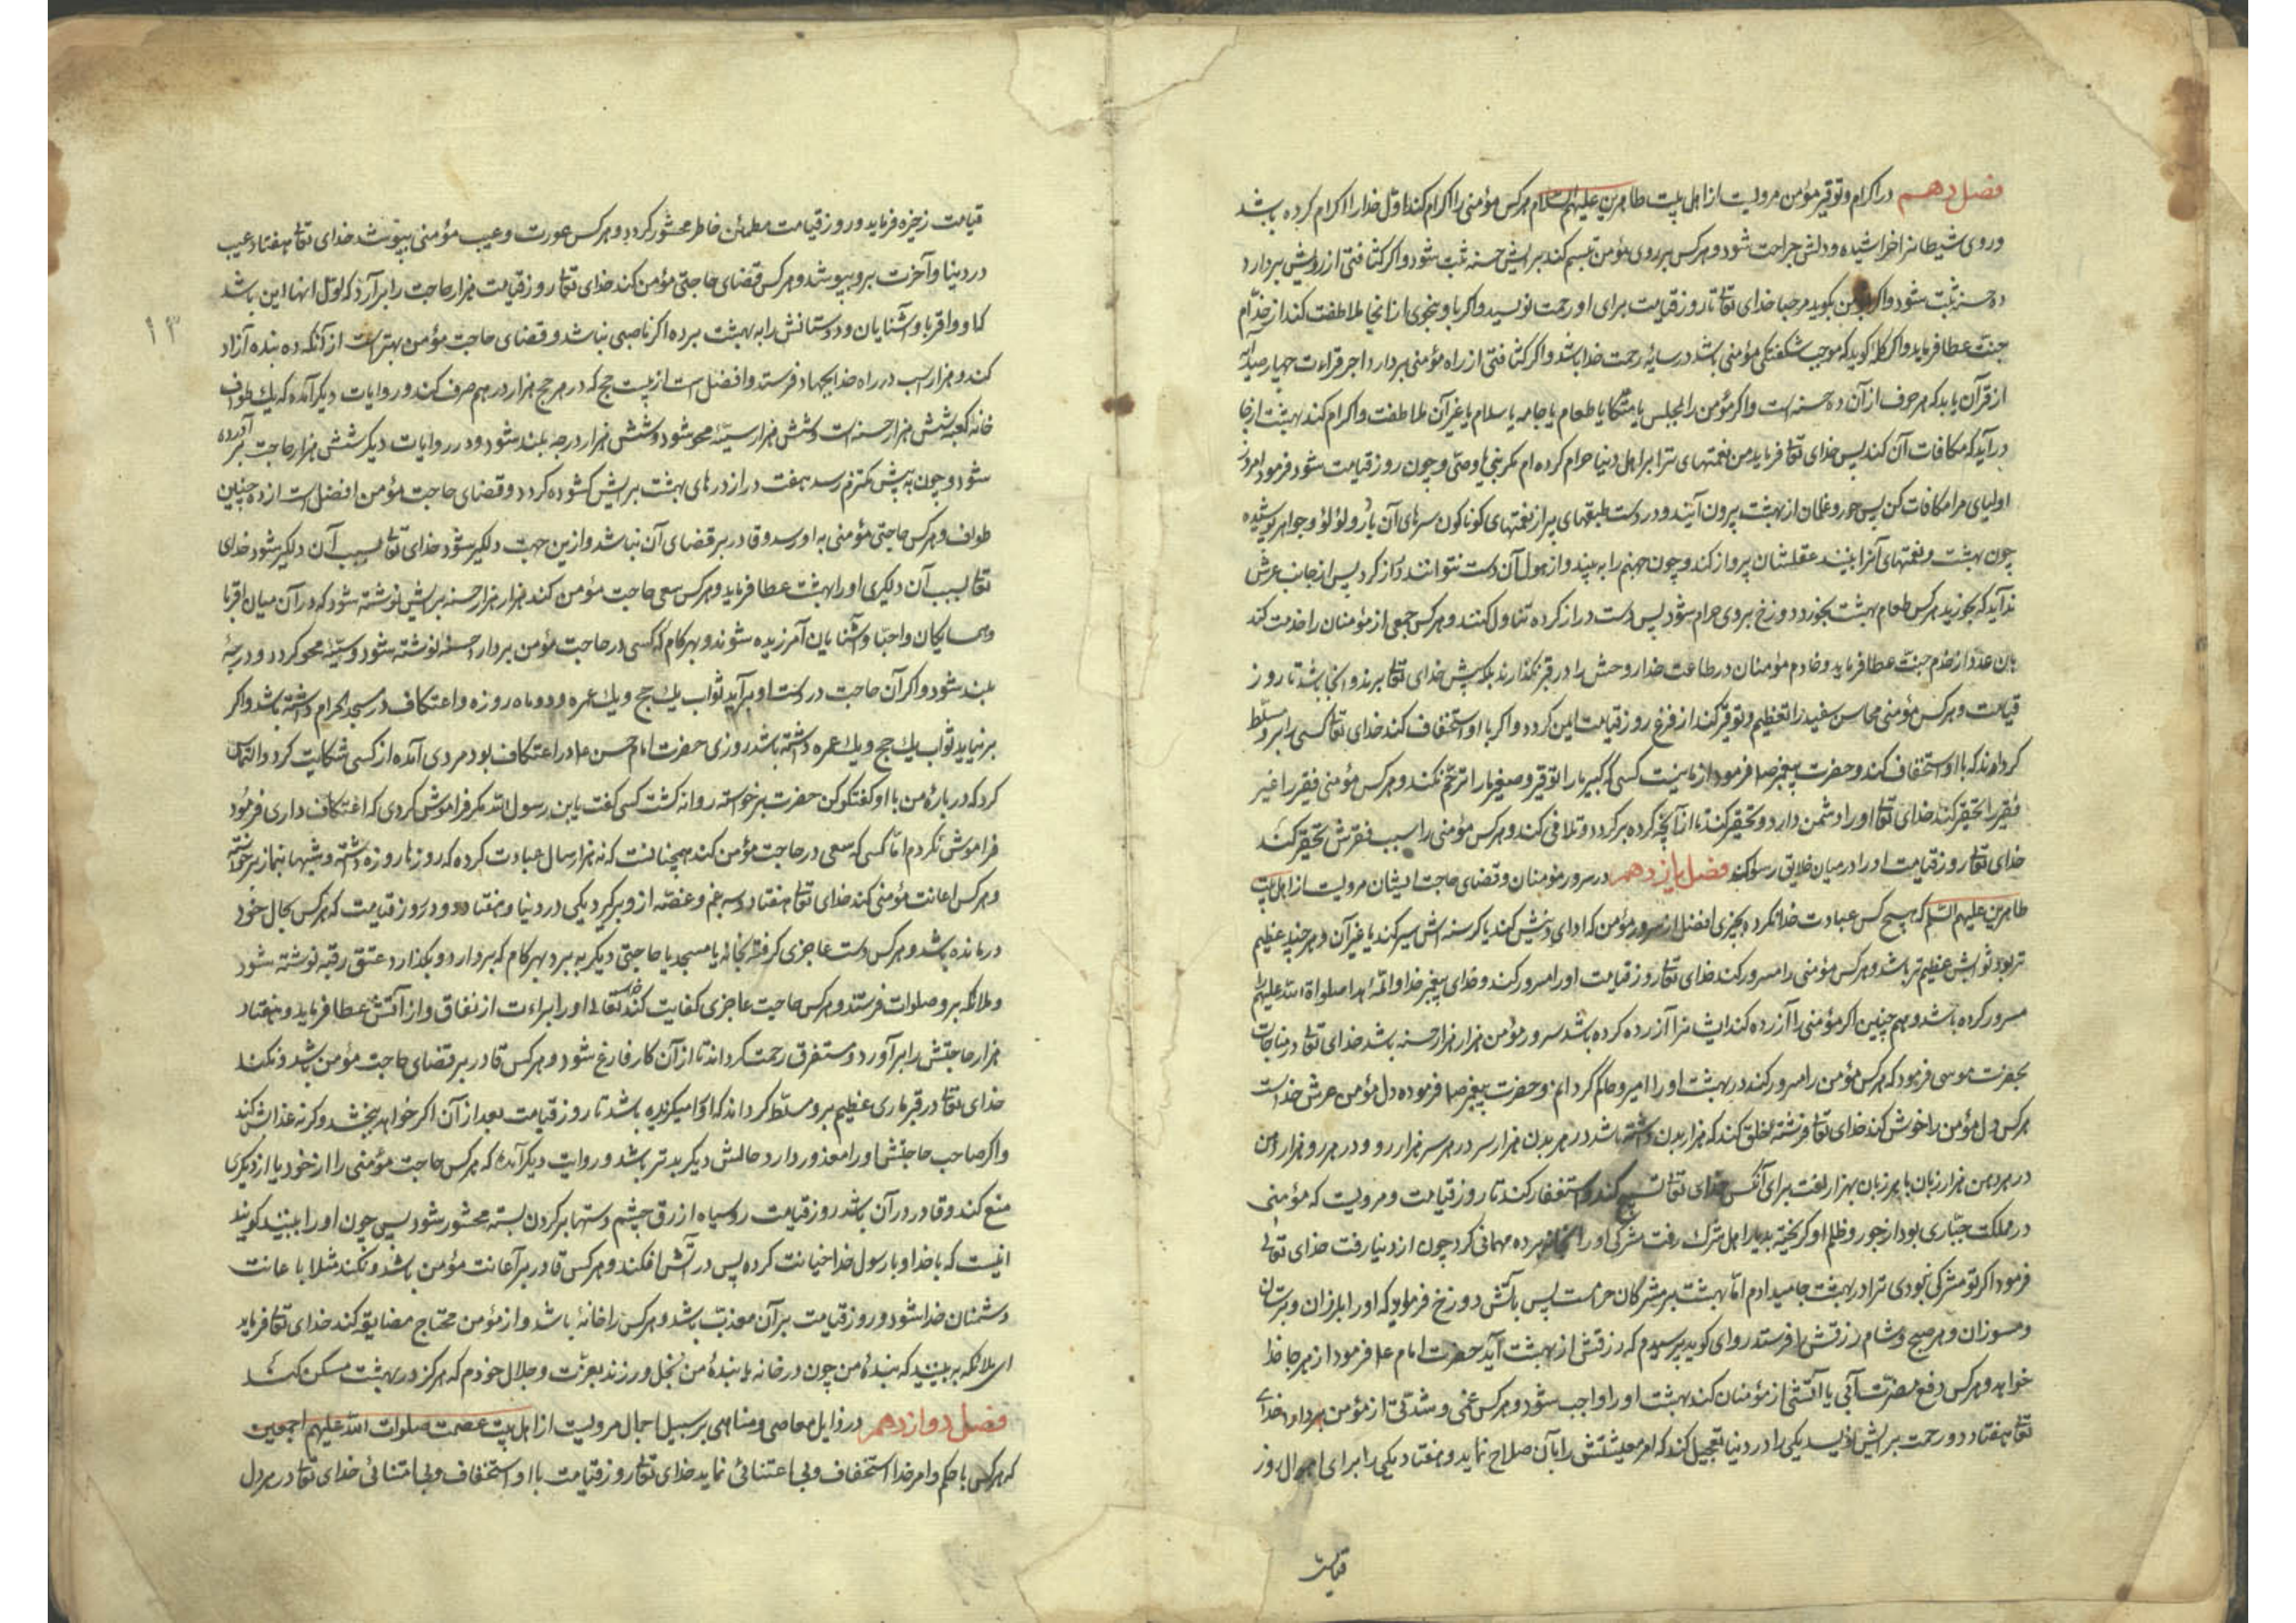 فصل دهم در اکرام و توقیر مؤمن مرویست از اهل بیت طاهرین علیهم السلام هرکس مؤمنی را اکرام کند اول خدا را اکرام کرده باشد
و روی شیطانرا خراشیده و دلش جراحت شود و هرکس بر روی مؤمن تبسم کند برایش حسنه ثبت شود و اگر کثافتی از رویش بردارد
ده حسنه ثبت شود و اگر بمؤمن بگوید مرحبا خدای تعالی تا روز قیامت برای او رحمت نویسد و اگر با او بنحوی از انحا ملاطفت کند از خدّام
جنّت عطا فرماید و اگر کلمه گوید که موجب شکفتگی مؤمنی باشد در سایه رحمت خدا باشد و اگر کثافتی از راه مؤمنی بردارد اجر قراءت چهارصد آیه
از قرآن یابد که هر حرف از آن ده حسنه است و اگر مؤمن را بمجلس یا متکا یا طعام یا جامه یا سلام یا غیر آن ملاطفت و اکرام کند بهشت از جا
در آید که مکافات آن کند پس خدای تعالی فرماید من نعمتهای ترا بر اهل دنیا حرام کرده ام مگر نبی یا وصی و چون روز قیامت شود فرمود امروز
اولیای مرا مکافات کن پس حور و غلمان از بهشت بیرون آیند و در دست طبقهای پر از نعمتهای کوناکون سرهای آن با دُر و لؤلؤ و جواهر پوشیده
چون بهشت و نعمتهای آنرا بینند عقلشان پرواز کند و چون جهنم را به بینند و از هول آن دست نتوانند دراز کرد پس از جانب عرش
ندا آید که بخورید هرکس طعام بهشت بخورد دوزخ بر وی حرام شود پس دست دراز کرده تناول کنند و هرکس جمعی از مؤمنان را خدمت کند
بان عدد از خدم جنت عطا فرماید و خادم مؤمنان در طاعت خدا روحش را در قبر نگذارند بلکه پیش خدای تعالی برند و آنجا باشد تا روز
قیامت و هرکس مؤمنی محاسن سفید را تعظیم و توقیر کند از فزع روز قیامت ایمن گردد و اگر با او استخفاف کند خدای تعالی کسی را بر او مسلط
گرداند که با او استخفاف کند و حضرت پیغمبر ص فرمود از ما نیست کسی که کبیر ما را توقیر و صغیر ما را ترحم نکند و هرکس مؤمنی فقیر را غیر
فقیر را تحقیر کند خدای تعالی او را دشمن دارد و تحقیر کند تا از آنچه کرده برگردد و تلافی کند و هرکس مؤمنی را بسبب فقرش تحقیر کند
خدای تعالی روز قیامت او را در میان خلایق رسوا کند فصل یازدهم در سرور مؤمنان و قضای حاجت ایشان مرویست از اهل بیت
طاهرین علیهم السلم که هیچ کس عبادت خدا نکرد بچیزی افضل از سرور مؤمن که ادای دینش کند یا کرسنه اش سیر کند یا غیر آن و هر چند عظیم
تر بود ثوابش عظیم تر باشد و هرکس مؤمنی را مسرور کند خدای تعالی روز قیامت او را مسرور کند و خدای پیغمبر خدا و ائمه هدا صلوات الله علیهم
مسرور کرده باشد و هم چنین اگر مؤمنی را آزرده کند ایشانرا آزرده کرده باشد سرور مؤمن هزار هزار حسنه باشد خدای تعالی در مناجات
بحضرت موسی فرمود که هرکس مؤمن را مسرور کند در بهشت او را امیر و حاکم گردانم و حضرت پیغمبر ص فرموده دل مؤمن عرش خداست
هرکس دل مؤمن را خوش کند خدای تعالی فرشته خلق کند که هزار بدن داشته باشد در هر بدن هزار سر در هر سر هزار رو و در هر رو هزار دهن
در هر دهن هزار زبان با هر زبان بهزار لغت برای آنکس خدای تعالی تسبیح کند و استغفار کند تا روز قیامت و مرویست که مؤمنی
در مملکت جباری بود از جور و ظلم او گریخته بدیار اهل شرک رفت مشرکی او را بخانه برده مهمانی کرد چون از دنیا رفت خدای تعالی
فرمود اگر تو مشرک نبودی ترا در بهشت جا میدادم امّا بهشت بر مشرکان حرامست پس باتش دوزخ فرماید که او را بلرزان و بترسان
و مسوزان و هر صبح و شام رزقش را فرستد روای گوید پرسیدم که رزقش از بهشت آید حضرت امام ع فرمود از هر جا خدا
خواهد و هرکس دفع مضرّت آبی یا آتشی از مؤمنان کند بهشت او را واجب شود و هرکس غمی و شدتی از مؤمن بردارد خدای
تعالی هفتاد دو رحمت برایش نویسد یکی را در دنیا تعجیل کند که امر معیشتش را بآن صلاح نماید و هفتاد یکی را برای اهوال روز
قیامت
قیامت زخیره فرماید و روز قیامت مطمئن خاطر محشور گردد و هرکس عورت و عیب مؤمنی بپوشد خدای تعالی هفتاد عیب
در دنیا و آخرت برو بپوشد و هرکس قضای حاجتی مؤمن کند خدای تعالی روز قیامت هزار حاجت را بر آرد که اول انها این باشد
۱۳
که او و اقربا و آشنایان و دوستانش را به بهشت برده اگر ناصبی نباشد و قضای حاجت مؤمن بهتر است از آنکه ده بنده آزاد
کند و هزار اسب در راه خدا بجهاد فرستد و افضل است از بیست حج که در هر حج هزار درهم صرف کند و روایات دیگر آمده که یک طواف
خانه کعبه شش هزار حسنه است و شش هزار سیّئه محو شود و شش هزار درجه بلند شود و در روایات دیگر شش هزار حاجت بر آورده
شود و چون به پیش ملتزم رسد هفت در از درهای بهشت برایش گشوده گردد و قضای حاجت مؤمن افضل است از ده چنین
طواف و هرکس حاجتی مؤمنی به او رسد و قادر بر قضای آن نباشد و ازین جهت دلگیر شود خدای تعالی بسبب آن دلگیر شود خدای
تعالی بسبب آن دلگیری او را بهشت عطا فرماید و هرکس سعی حاجت مؤمن کند هزار هزار حسنه برایش نوشته شود که در آن میان اقربا
و همسایگان و احبّا و آشنایان آمرزیده شوند و بهر کام که کسی در حاجت مؤمن بردارد حسنه نوشته شود و سیّئه محو گردد و درجهٔ
بلند شود و اگر آن حاجت در دست او بر آید ثواب یک حج و یک عمره و دو ماه روزه و اعتکاف در مسجد الحرام داشته باشد و اگر
بر نیاید ثواب یک حج و یک عمره داشته باشد روزی حضرت امام حسن ع در اعتکاف بود مردی آمده از کسی شکایت کرد و التماس
کرد که درباره من با او گفتگو کن حضرت برخواسته روانه گشت کسی گفت یابن رسول الله مگر فراموش کردی که اعتکاف داری فرمود
فراموش نکردم امّا کسی که سعی در حاجت مؤمن کند همچنانست که نه هزار سال عبادت کرده که روزها روزه داشته و شبها بنماز برخواسته
و هرکس اعانت مؤمنی کند خدای تعالی هفتاد و سه غم و غصّه از و برگیرد یکی در دنیا و هفتاد و دو در روز قیامت که هرکس بحال خود
درمانده باشد و هرکس دست عاجزی گرفته بخانه یا مسجد یا حاجتی دیگر به برد بهر کام که بردارد و بگذارد عتق رقبه نوشته شود
و ملائکه برو صلوات فرستند و هرکس حاجت عاجزی کفایت کند خدای تعالی او را براءت از نفاق و از آتش عطا فرماید و هفتاد
هزار حاجتش را بر آورد و مستغرق رحمت گرداند تا از آن کار فارغ شود و هرکس قادر بر قضای حاجت مؤمن باشد و نکند
خدای تعالی در قبر ماری عظیم برو مسلّط گرداند که او را میگزیده باشد تا روز قیامت بعد از آن اگر خواهد بخشد و گرنه عذابش کند
و اگر صاحب حاجتش او را معذور دارد حالش دیگر بدتر باشد و روایت دیگر آمده که هرکس حاجت مؤمنی را از خود یا از دیگری
منع کند و قادر در آن باشد روز قیامت روسیاه ازرق چشم دستها بر گردن بسته محشور شود پس چون او را ببینند گویند
اینست که با خدا و با رسول خدا خیانت کرده پس در آتش افکند و هرکس قادر بر اعانت مؤمن باشد و نکند مبتلا با عانت
دشمنان خدا شود و روز قیامت بر آن معذّب باشد و هرکس را خانهٔ باشد و از مؤمن محتاج مضایقه کند خدای تعالی فرماید
ای ملائکه به بینید که بندهٔ من چون در خانه با بندهٔ من بخل ورزند بعزّت و جلال خودم که هرگز در بهشت مسکن کند
فصل دوازدهم در رذایل معاصی و مناهی بر سبیل اجمال مرویست از اهل بیت عصمت صلوات الله علیهم اجمعین
که هرکس با حکم و امر خدا استخفاف و بی اعتنائی نماید خدای تعالی روز قیامت با او استخفاف و بی اعتنائی خدای تعالی در هر دل